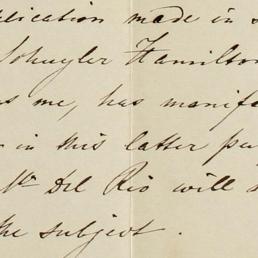 plication made in s
Schuyler Hamilton
as me, has manife
in this latter pu
Mr. Del Rio will
the subject.